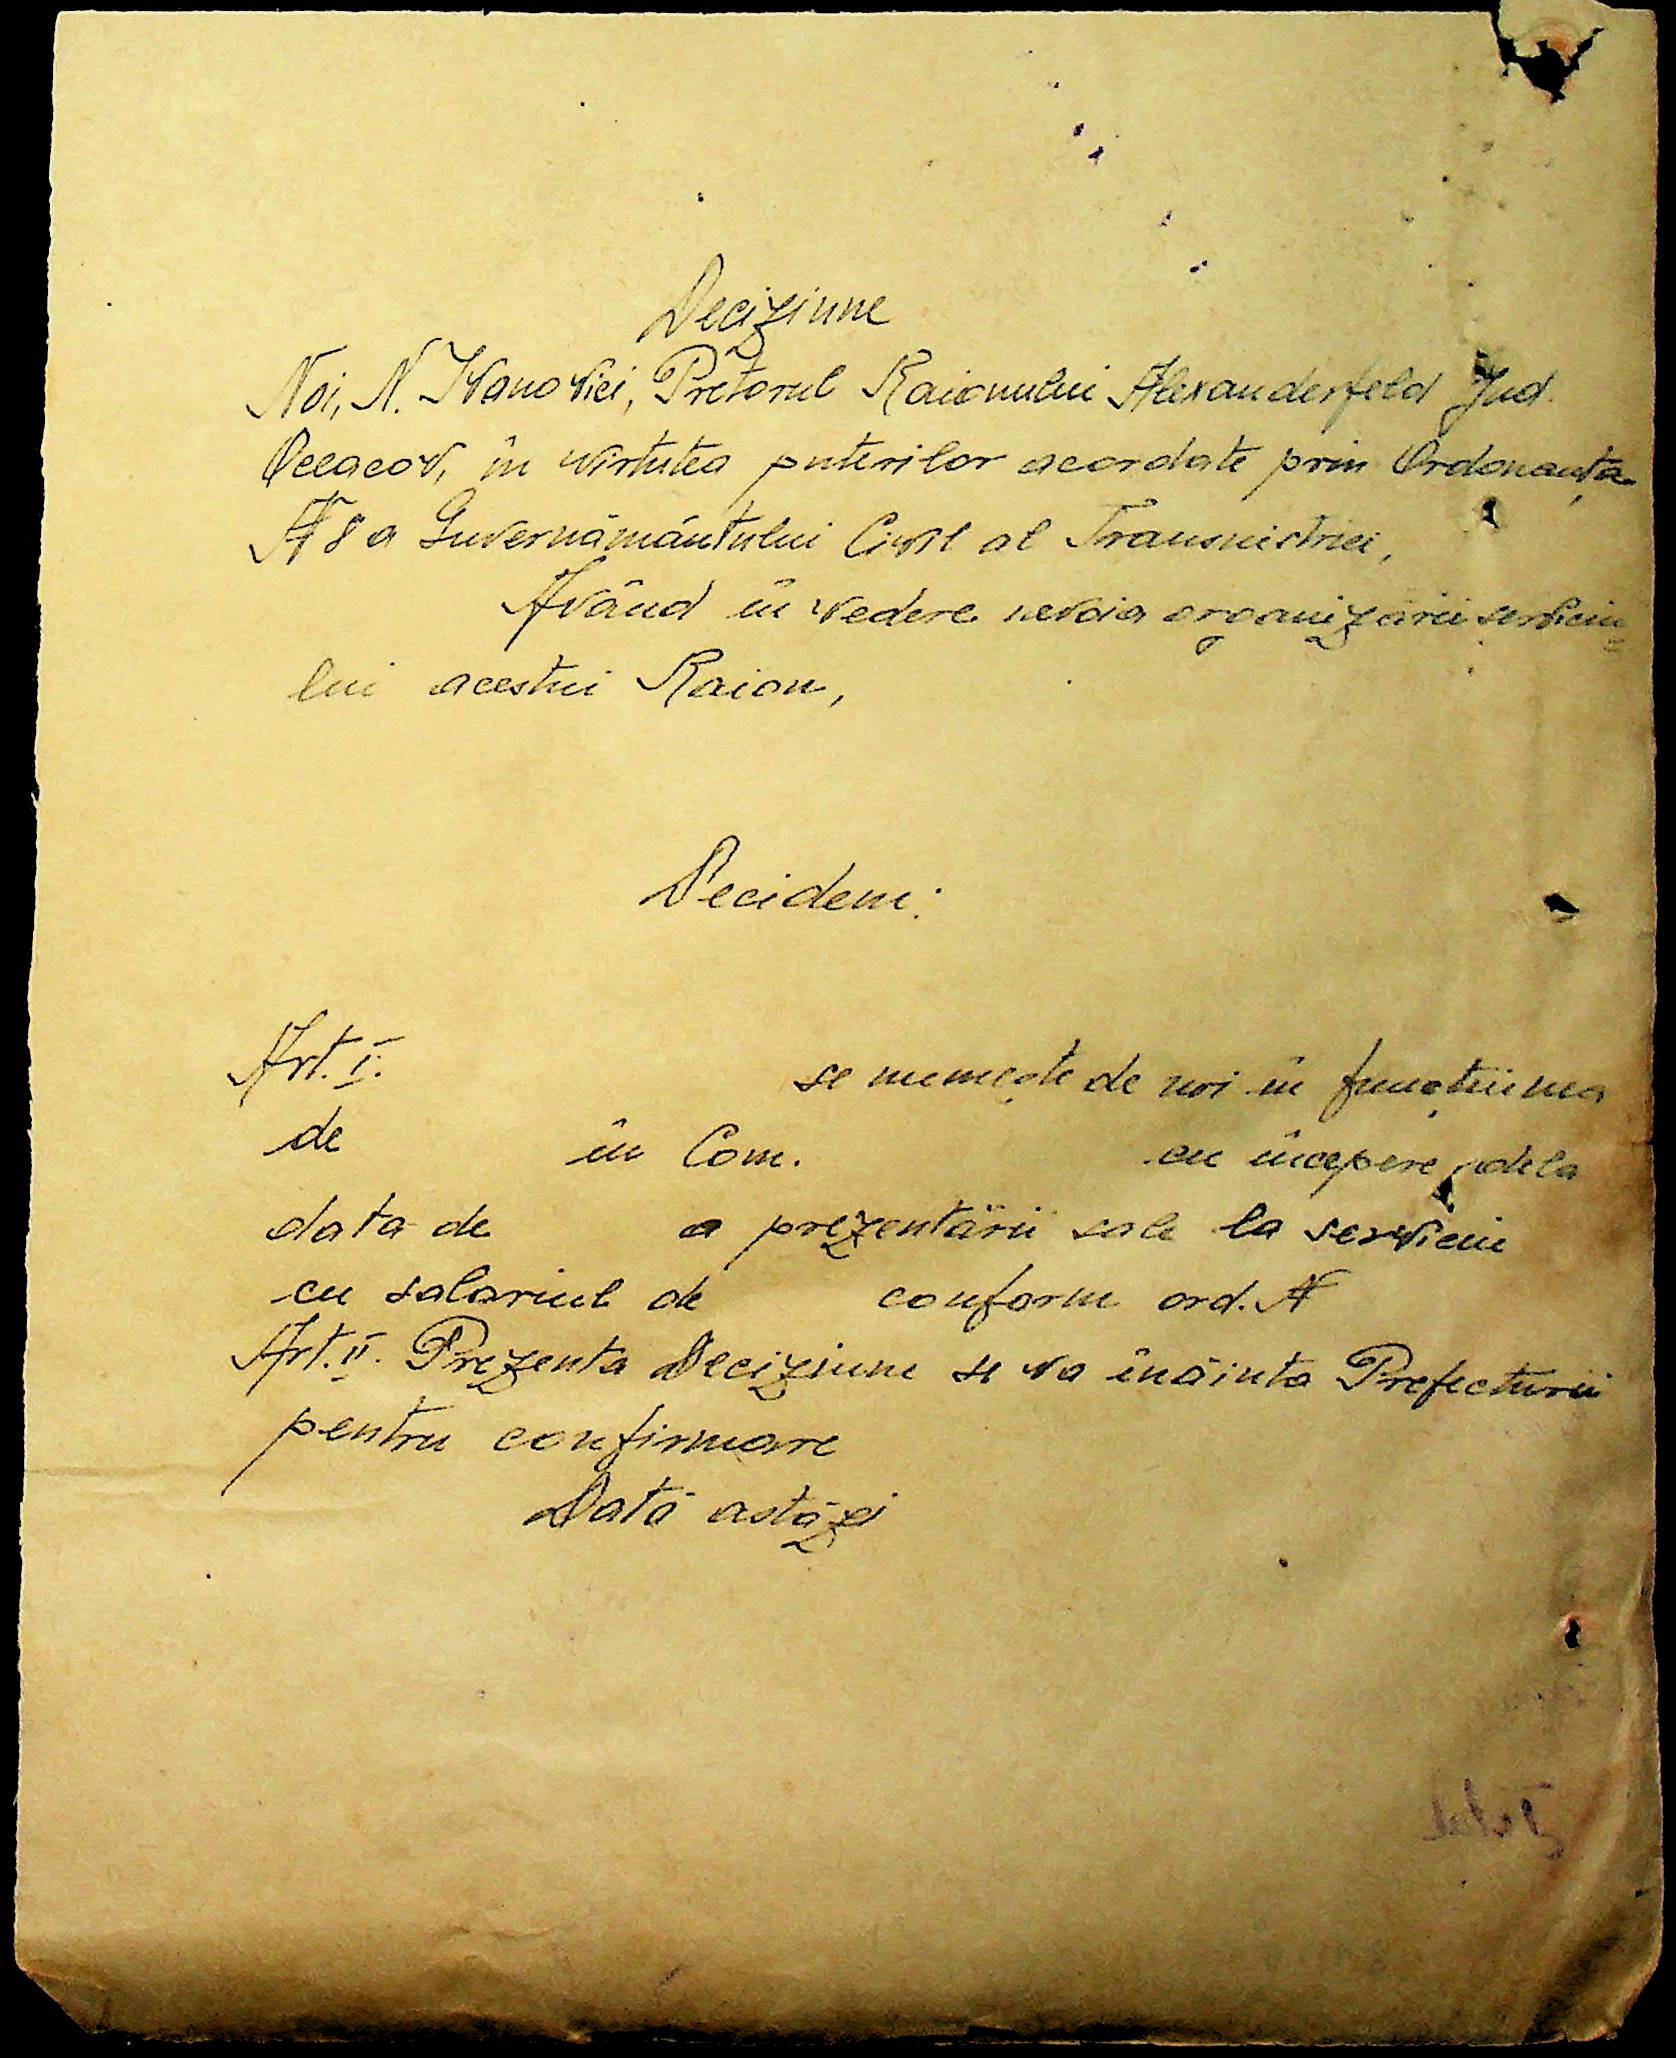 Deciziune
Noi, N. Ivanovici, Pretorul Raionului Alexanderfeld Jud.
Oceacov, în virtutea puterilor acordate prin Ordonanța
№ 8 a Guvernământului Civil al Transnistriei,
Având în vedere nevoia organizării serviciu-
lui acestui Raion,
Decidem:
Art. I. se numește de noi în funcțiunea
de în Com. cu începere dela
data de a prezentării sale la serviciu
cu salariul de conform ord. №
Art. II. Prezenta Deciziune se va înainta Prefecturii
pentru confirmare
Dată astăzi